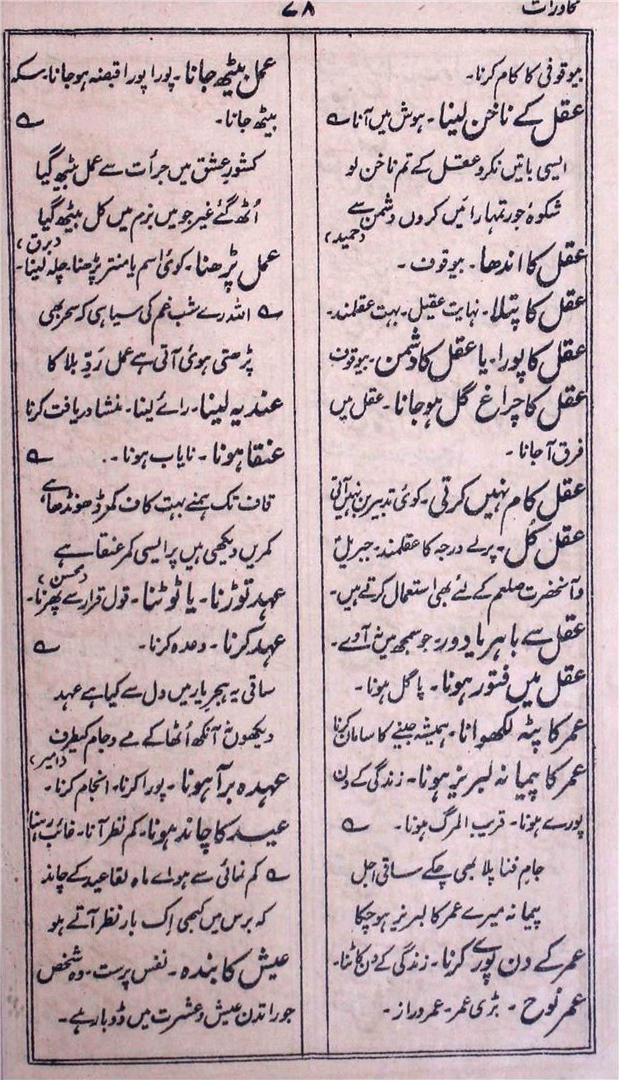 محاورات
۷۸
بیوقوفی کا کام کرنا۔
عقل کے ناخن لینا۔ ہوش میں آنا؎
ایسی باتیں نکرو عقل کے تم ناخن لو
شکوۂ جور تمہارا میں کروں دشمن سے
(حمید)
عقل کا اندھا۔ بیوقوف۔
عقل کا پتلا۔ نہایت عقیل۔ بہت عقلمند۔
عقل کا پورا۔ یا عقل کا دشمن۔ بیوقوف
عقل کا چراغ گل ہو جانا۔ عقل میں
فرق آ جانا۔
عقل کام نہیں کرتی۔ کوئی تدبیر بن نہیں آتی
عقل کُل۔ پرلے درجہ کا عقلمند۔ جبریلؑ
و آنحضرت صلعم کے لئے بھی استعمال کرتے ہیں۔
عقل سے باہر یا دور۔ جو سمجھ میں نہ آوے۔
عقل میں فتور ہونا۔ پاگل ہونا۔
عمر کا پٹہ لکھوانا۔ ہمیشہ جینے کا سامان کرنا
عمر کا پیمانہ لبریز ہونا۔ زندگی کے دن
پورے ہونا۔ قریب المرگ ہونا۔ ؎
جام فنا پلا بھی چکے ساقی اجل
پیمانہ میرے عمر کا لبریز ہو چکا
عمر کے دن پورے کرنا۔ زندگی کے دن کاٹنا۔
عمر نوح۔ بڑی عمر۔ عمر دراز۔
عمل بیٹھ جانا۔ پورا پورا قبضہ ہو جانا۔ سکہ
بیٹھ جانا۔ ؎
کشور عشق میں جرأت سے عمل بیٹھ گیا
اُٹھ گئے غیر جو میں بزم میں کل بیٹھ گیا
(برق)
عمل پڑھنا۔ کوئی اسم یا منتر پڑھنا۔ چلہ لینا۔
؎ اللہ رے شب غم کی سیاہی کہ سحر بھی
پڑھتی ہوئی آتی ہے عمل رَدِّ بلا کا
عندیہ لینا۔ رائے لینا۔ منشا دریافت کرنا
عنقا ہونا۔ نایاب ہونا۔ ؎
قاف تک ہمنے بہت کاف کمر ڈھونڈھا ہے
کمریں دیکھی ہیں پر ایسی کمر عنقا ہے
(محسن)
عہد توڑنا۔ یا ٹوٹنا۔ قول قرار سے پھرنا۔
عہد کرنا۔ وعدہ کرنا۔ ؎
ساقی یہ ہجر یار میں دل سے کیا ہے عہد
دیکھوں نہ آنکھ اُٹھا کے مے و جام کیطرف
(امیر)
عہدہ برآ ہونا۔ پورا کرنا۔ انجام کرنا۔
عید کا چاند ہونا۔ کم نظر آنا۔ غائب رہنا
؎ کم نمائی سے ہو اے ماہ لقا عید کے چاند
کہ برس میں کبھی اِک بار نظر آتے ہو
عیش کا بندہ۔ نفس پرست۔ وہ شخص
جو راتدن عیش و عشرت میں ڈوبا رہے۔